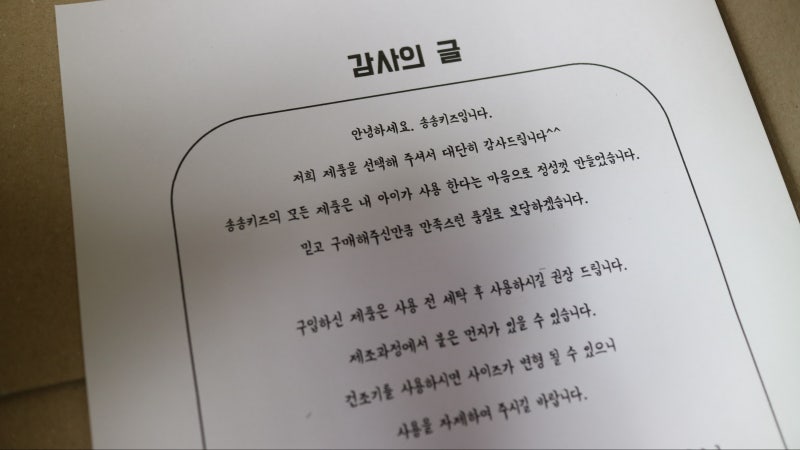 감사의 글
안녕하세요. 송송키즈입니다.
저희 제품을 선택해 주셔서 대단히 감사드립니다^^
송송키즈의 모든 제품은 내 아이가 사용 한다는 마음으로 정성껏 만들었습니다.
믿고 구매해주신만큼 만족스런 품질로 보답하겠습니다.
구입하신 제품은 사용 전 세탁 후 사용하시길 권장 드립니다.
제조과정에서 붙은 먼지가 있을 수 있습니다.
건조기를 사용하시면 사이즈가 변형 될 수 있으니
사용을 자제하여 주시길 바랍니다.